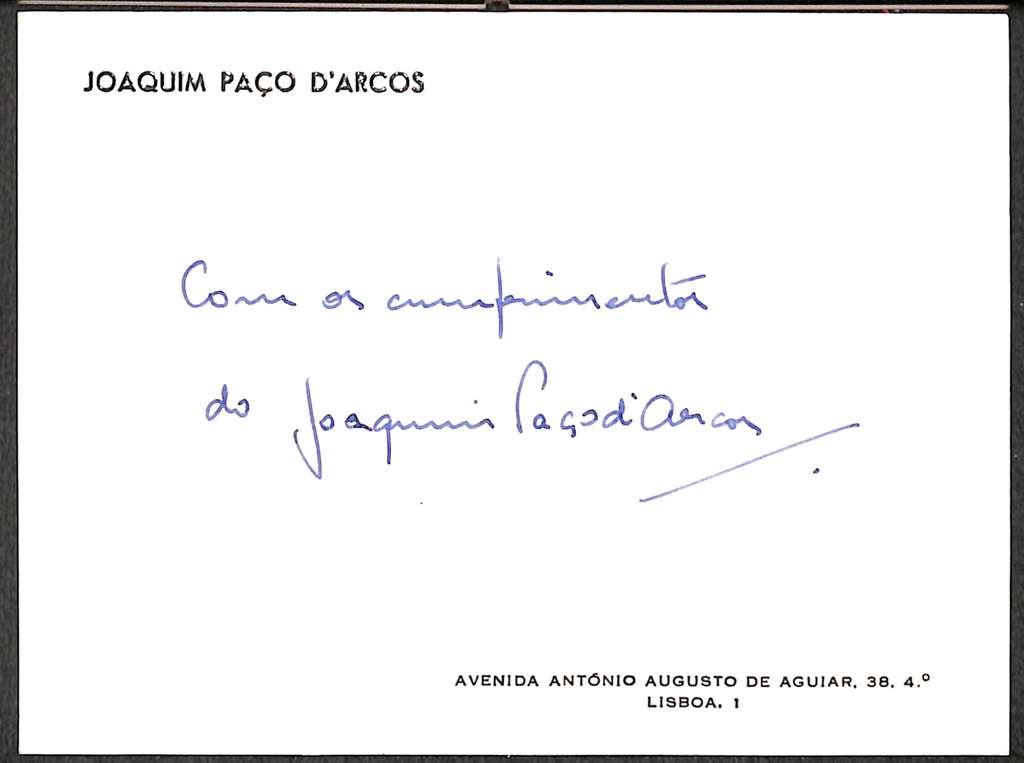 JOAQUIM PAÇO D'ARCOS
Com os cumprimentos
do Joaquim Paço d'Arcos
AVENIDA ANTÓNIO AUGUSTO DE AGUIAR, 38, 4.º
LISBOA, 1